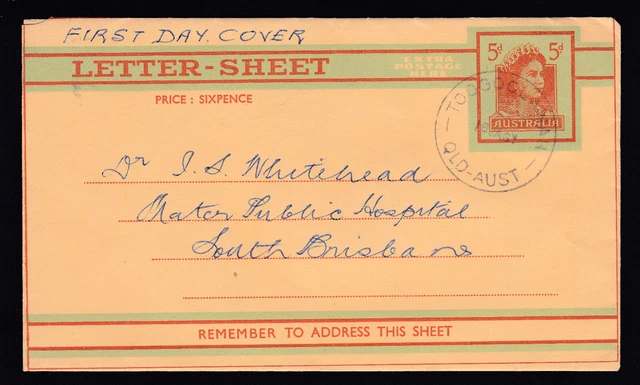 FIRST DAY COVER
5d 5d
EXTRA
POSTAGE
HERE
LETTER-SHEET
AUSTRALIA
PRICE : SIXPENCE
QLD-AUST
Dr I. S. Whitehead
Mater Public Hospital
South Brisbane
REMEMBER TO ADDRESS THIS SHEET